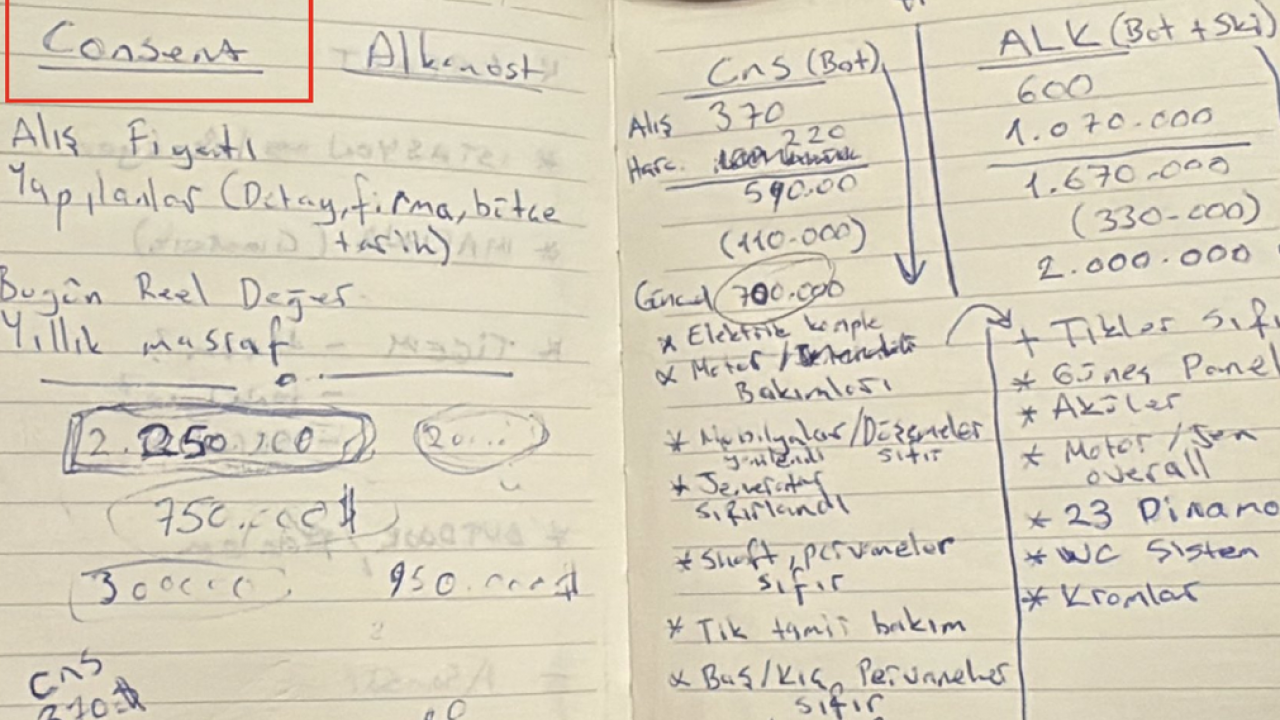 Consent Alkonost
Alış Fiyatı
Yapılanlar (Detay, firma, bütçe
tarih)
Bugün Reel Değer
Yıllık masraf
2.250.000
750.000$
300000 950.000$
CnS
310$
CnS (Bot)
Alış 370
Harc. 220
590.00
(110.000)
Güncel 700.000
* Elektrik komple
* Motor /
Bakımları
* Mobilyalar/Döşemeler
yenilendi sıfır
* Jeneratör
sıfırlandı
* Shaft, pervaneler
sıfır
* Tik tamir bakım
* Baş/Kıç Pervaneler
sıfır
ALK (Bot + Ski)
600
1.070.000
1.670.000
(330.000)
2.000.000
+ Tikler sıfı
* Güneş Panel
* Aküler
* Motor / Jen
overall
* 23 Dinamo
* WC Sistem
* Kromlar